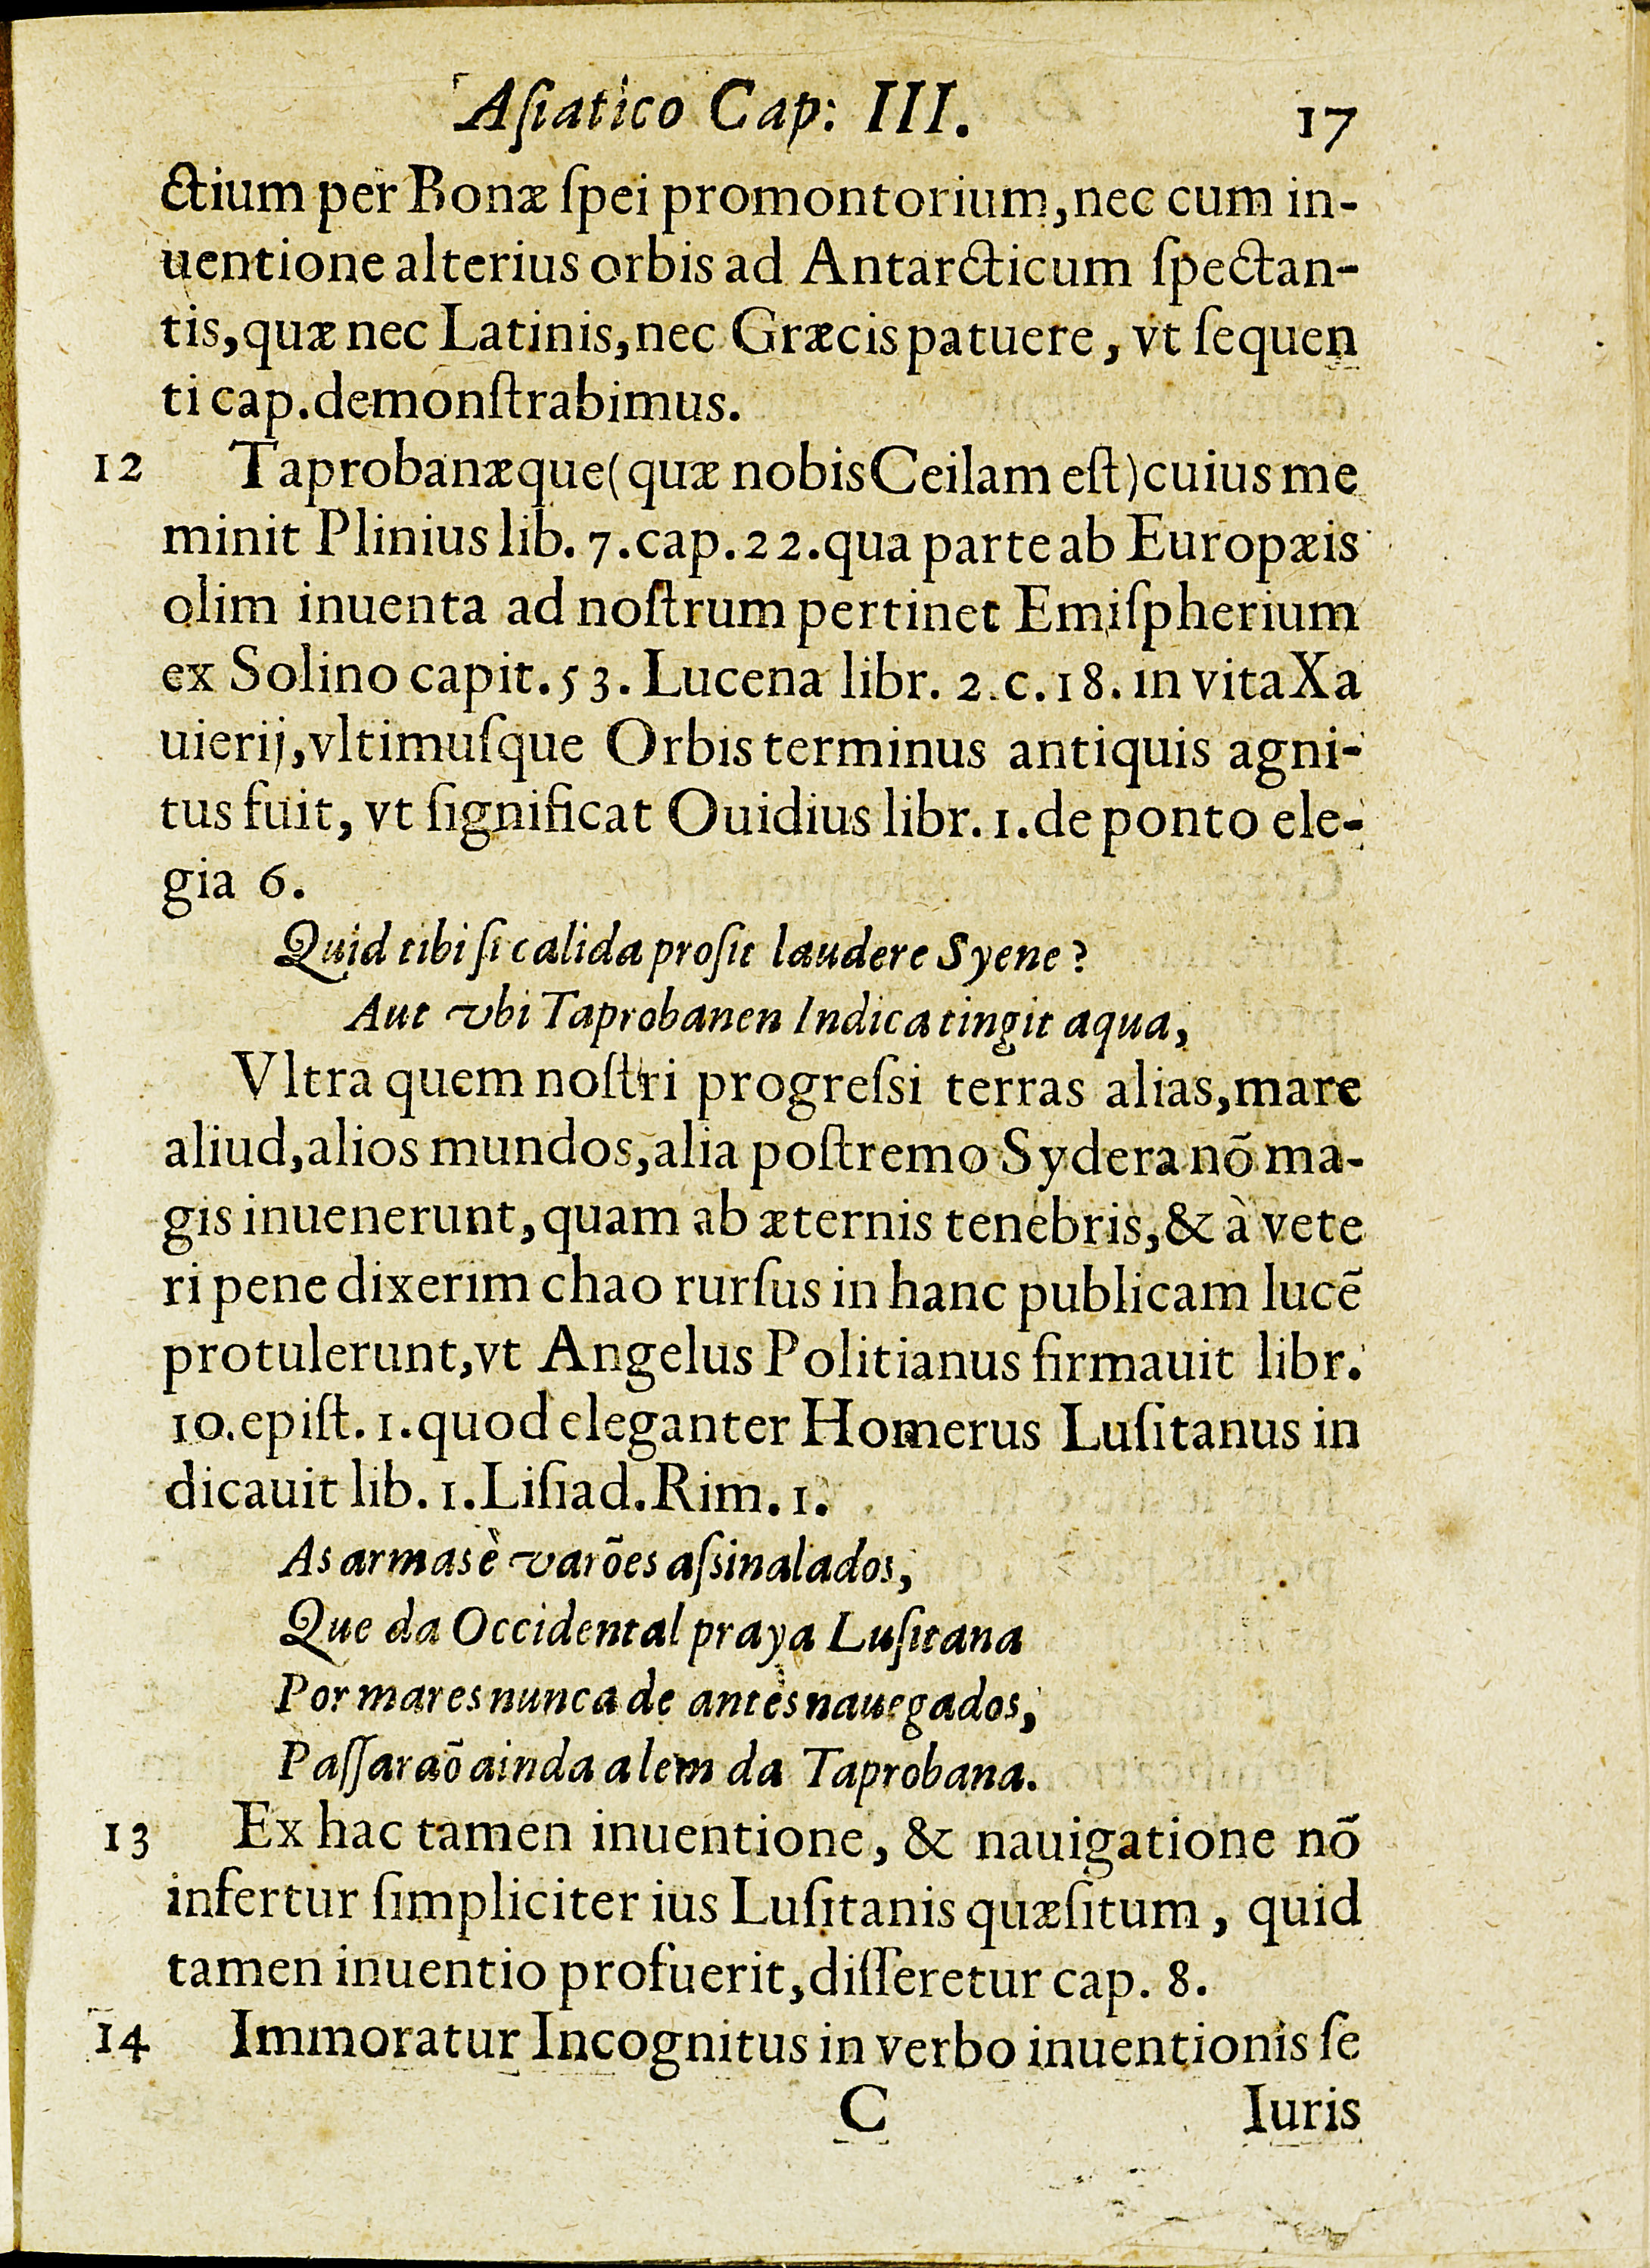 Aſiatico Cap: III. 17
ctium per Bonæ ſpei promontorium, nec cum in-
uentione alterius orbis ad Antarcticum ſpectan-
tis, quæ nec Latinis, nec Græcis patuere, vt ſequen
ti cap. demonſtrabimus.
12 Taprobanæque (quæ nobis Ceilam eſt) cuius me
minit Plinius lib. 7. cap. 22. qua parte ab Europæis
olim inuenta ad noſtrum pertinet Emiſpherium
ex Solino capit. 53. Lucena libr. 2. c. 18. in vita Xa
uierij, vltimuſque Orbis terminus antiquis agni-
tus fuit, vt ſignificat Ouidius libr. 1. de ponto ele-
gia 6.
Quid tibi ſi calida proſit laudere Syene?
Aut vbi Taprobanen Indica tingit aqua,
Vltra quem noſtri progreſsi terras alias, mare
aliud, alios mundos, alia poſtremo Sydera nõ ma-
gis inuenerunt, quam ab æternis tenebris, & à vete
ri pene dixerim chao rurſus in hanc publicam lucẽ
protulerunt, vt Angelus Politianus firmauit libr.
10. epiſt. 1. quod eleganter Homerus Luſitanus in
dicauit lib. 1. Liſiad. Rim. 1.
As armas è varões aſsinalados,
Que da Occidental praya Luſitana
Por mares nunca de antès nauegados,
Paſſaraõ ainda alem da Taprobana.
13 Ex hac tamen inuentione, & nauigatione nõ
infertur ſimpliciter ius Luſitanis quæſitum, quid
tamen inuentio profuerit, diſſeretur cap. 8.
14 Immoratur Incognitus in verbo inuentionis ſe
C Iuris